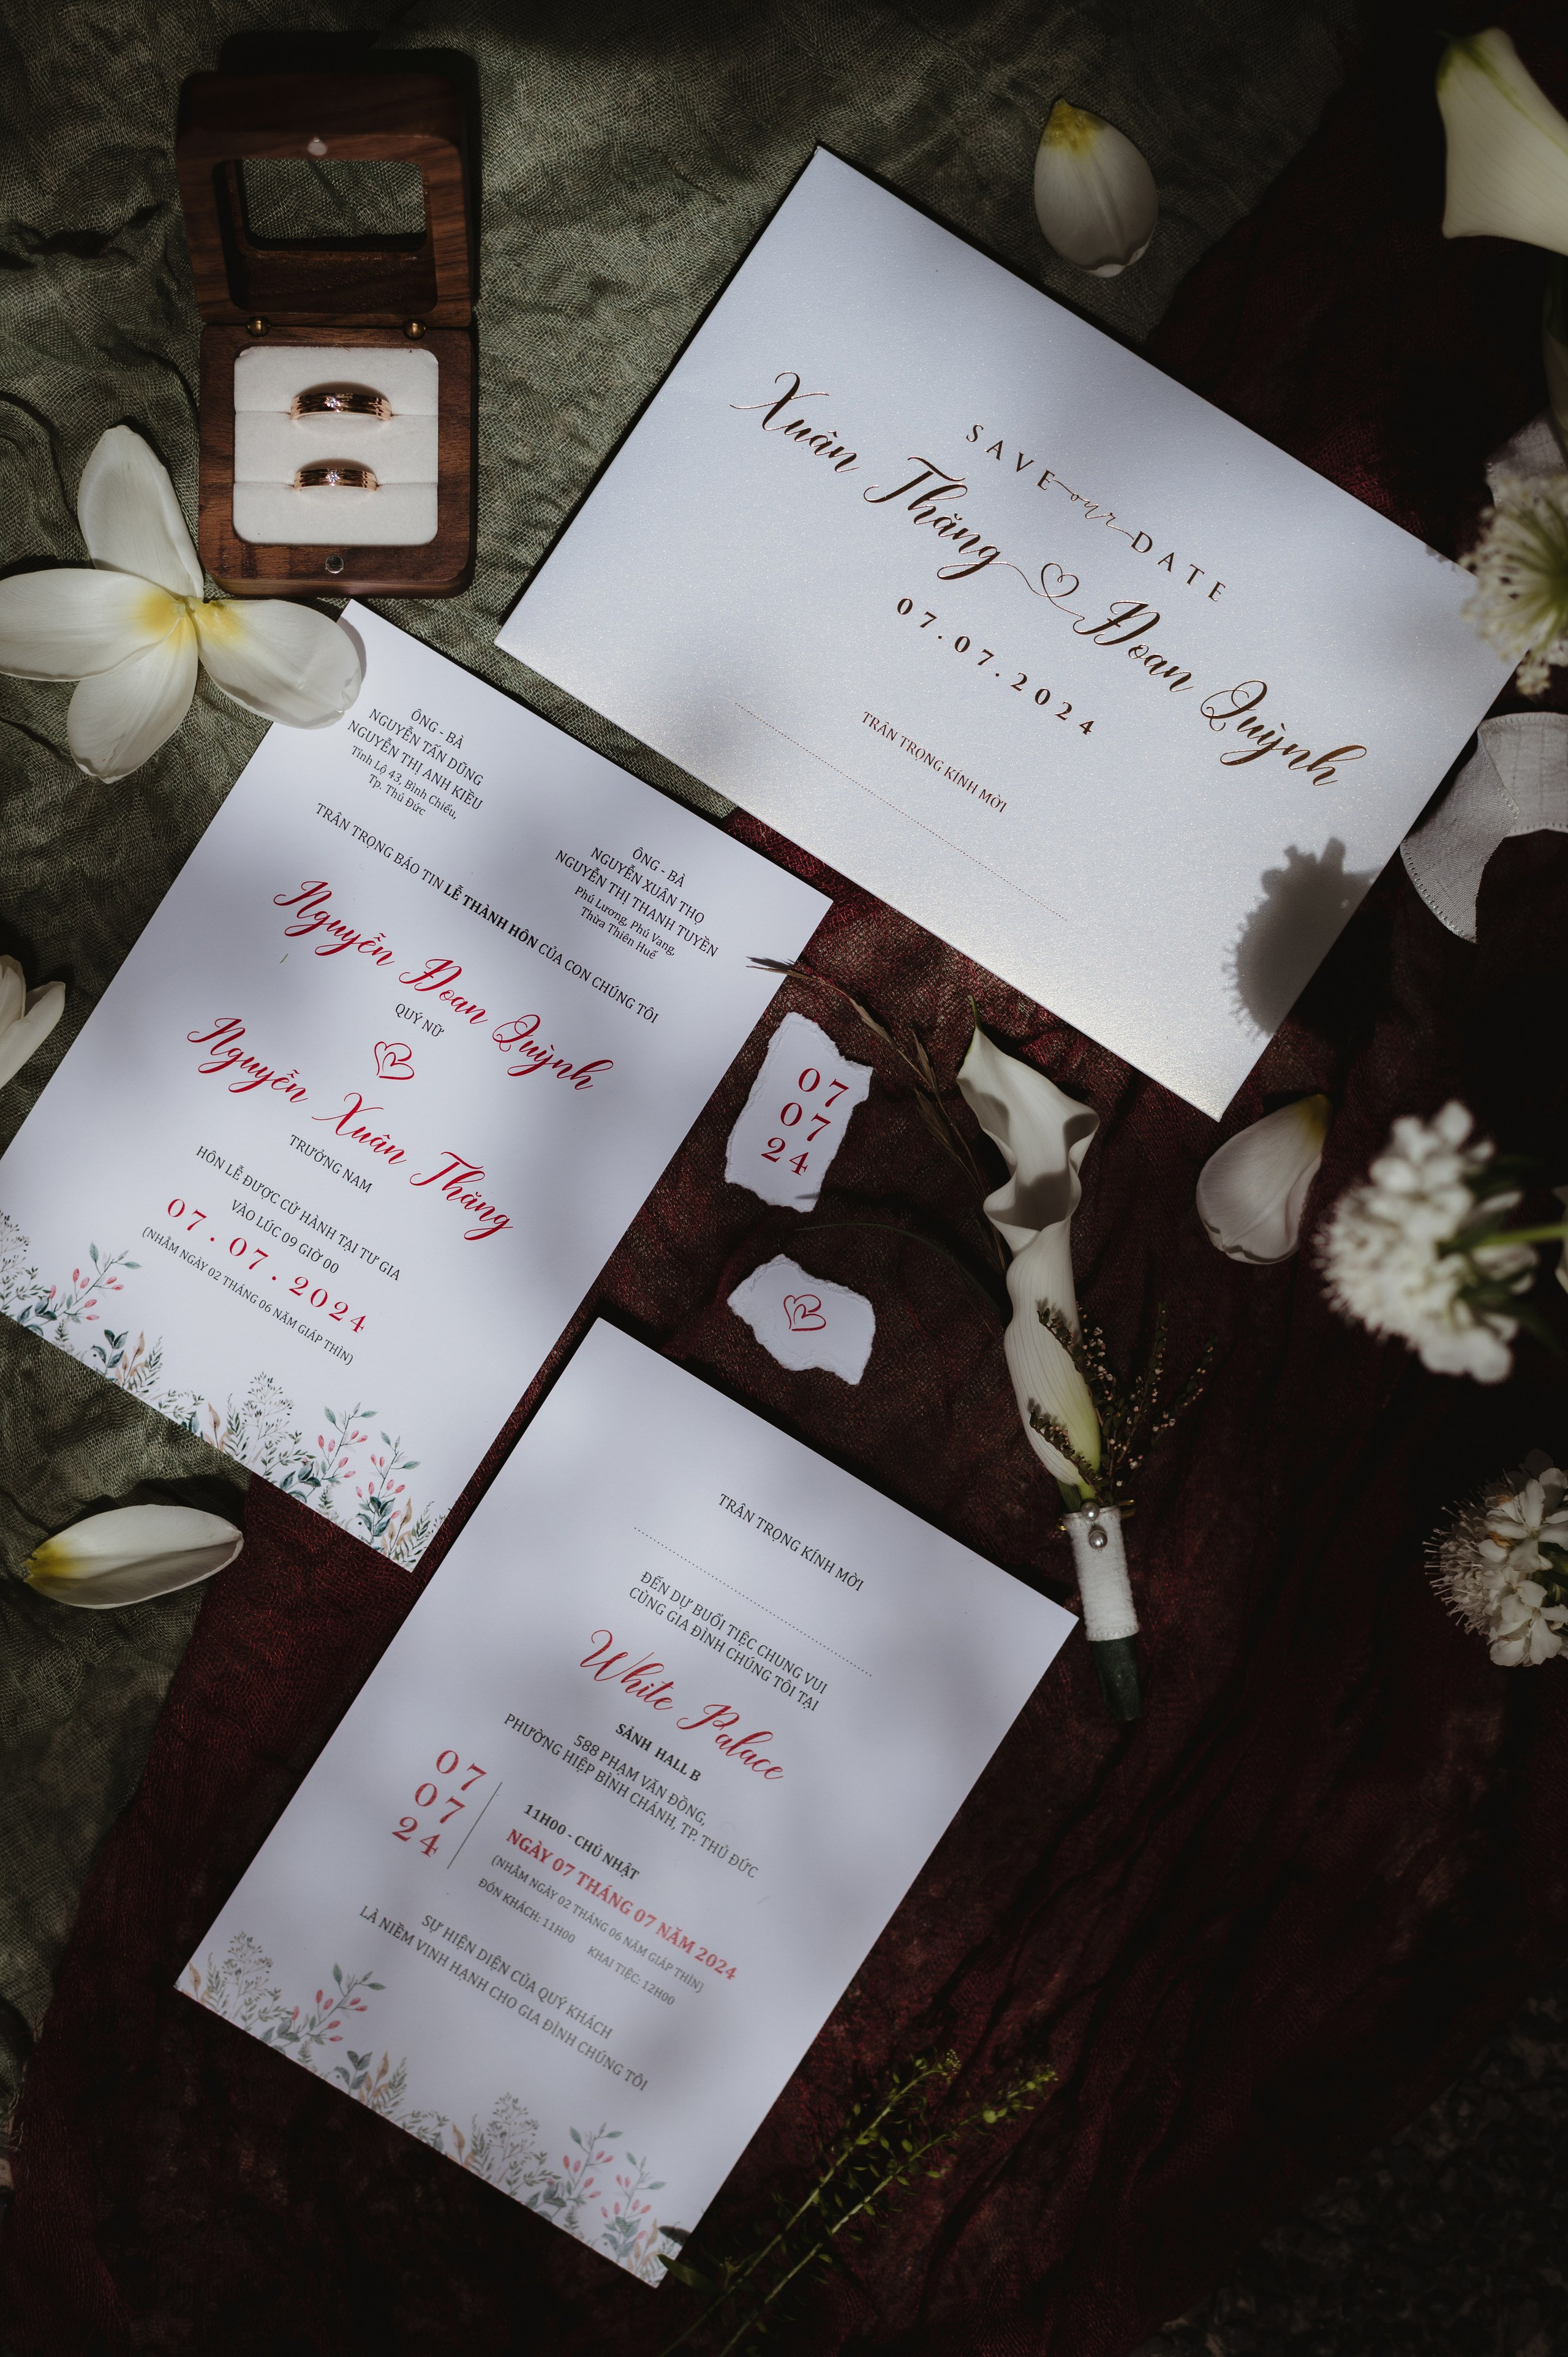 SAVE our DATE
Xuân Thăng Đoan Quỳnh
07.07.2024
TRÂN TRỌNG KÍNH MỜI
ÔNG - BÀ
NGUYỄN TẤN DŨNG
NGUYỄN THỊ ANH KIỀU
Tỉnh Lộ 43, Bình Chiểu,
Tp. Thủ Đức
ÔNG - BÀ
NGUYỄN XUÂN THỌ
NGUYỄN THỊ THANH TUYỀN
Phú Lương, Phú Vang,
Thừa Thiên Huế
TRÂN TRỌNG BÁO TIN LỄ THÀNH HÔN CỦA CON CHÚNG TÔI
Nguyễn Đoan Quỳnh
QUÝ NỮ
Nguyễn Xuân Thăng
TRƯỞNG NAM
HÔN LỄ ĐƯỢC CỬ HÀNH TẠI TƯ GIA
VÀO LÚC 09 GIỜ 00
07.07.2024
(NHẰM NGÀY 02 THÁNG 06 NĂM GIÁP THÌN)
07
07
24
TRÂN TRỌNG KÍNH MỜI
ĐẾN DỰ BUỔI TIỆC CHUNG VUI
CÙNG GIA ĐÌNH CHÚNG TÔI TẠI
White Palace
SẢNH HALL B
588 PHẠM VĂN ĐỒNG,
PHƯỜNG HIỆP BÌNH CHÁNH, TP. THỦ ĐỨC
07
07
24
11H00 - CHỦ NHẬT
NGÀY 07 THÁNG 07 NĂM 2024
(NHẰM NGÀY 02 THÁNG 06 NĂM GIÁP THÌN)
ĐÓN KHÁCH: 11H00 KHAI TIỆC: 12H00
SỰ HIỆN DIỆN CỦA QUÝ KHÁCH
LÀ NIỀM VINH HẠNH CHO GIA ĐÌNH CHÚNG TÔI